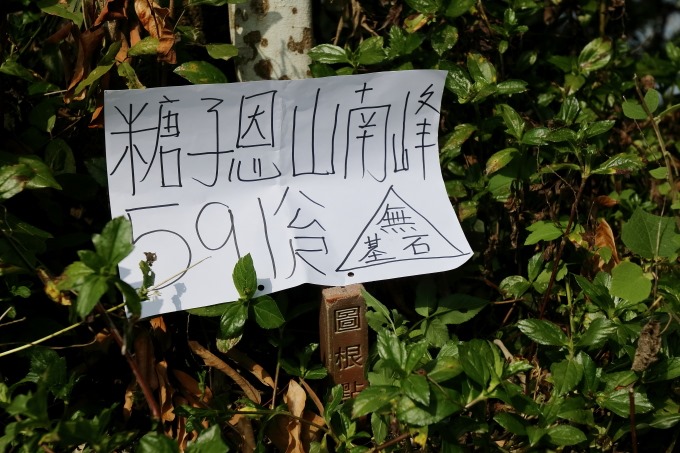 糖子恩山南峰
591公尺
無
基石
圖根點